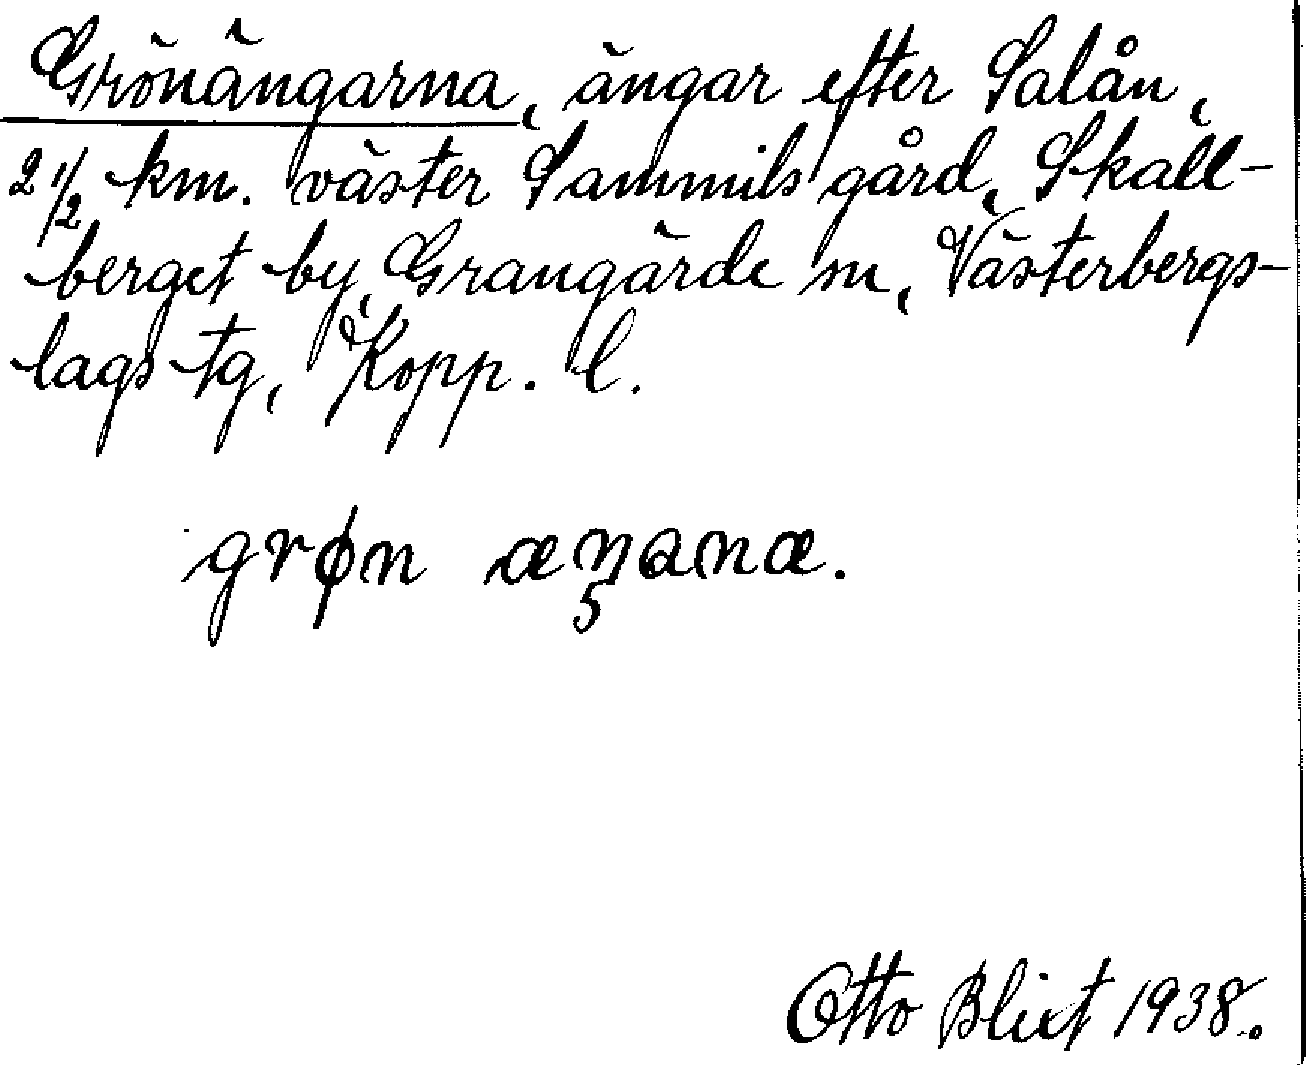 Grönängarna, ängar efter Salån,
2 1/2 km. väster Sammils gård, Skall-
berget by, Grangärde sn, Västerbergs-
lags tg, Kopp. l.
grøn æŋana.
Otto Blixt 1938.